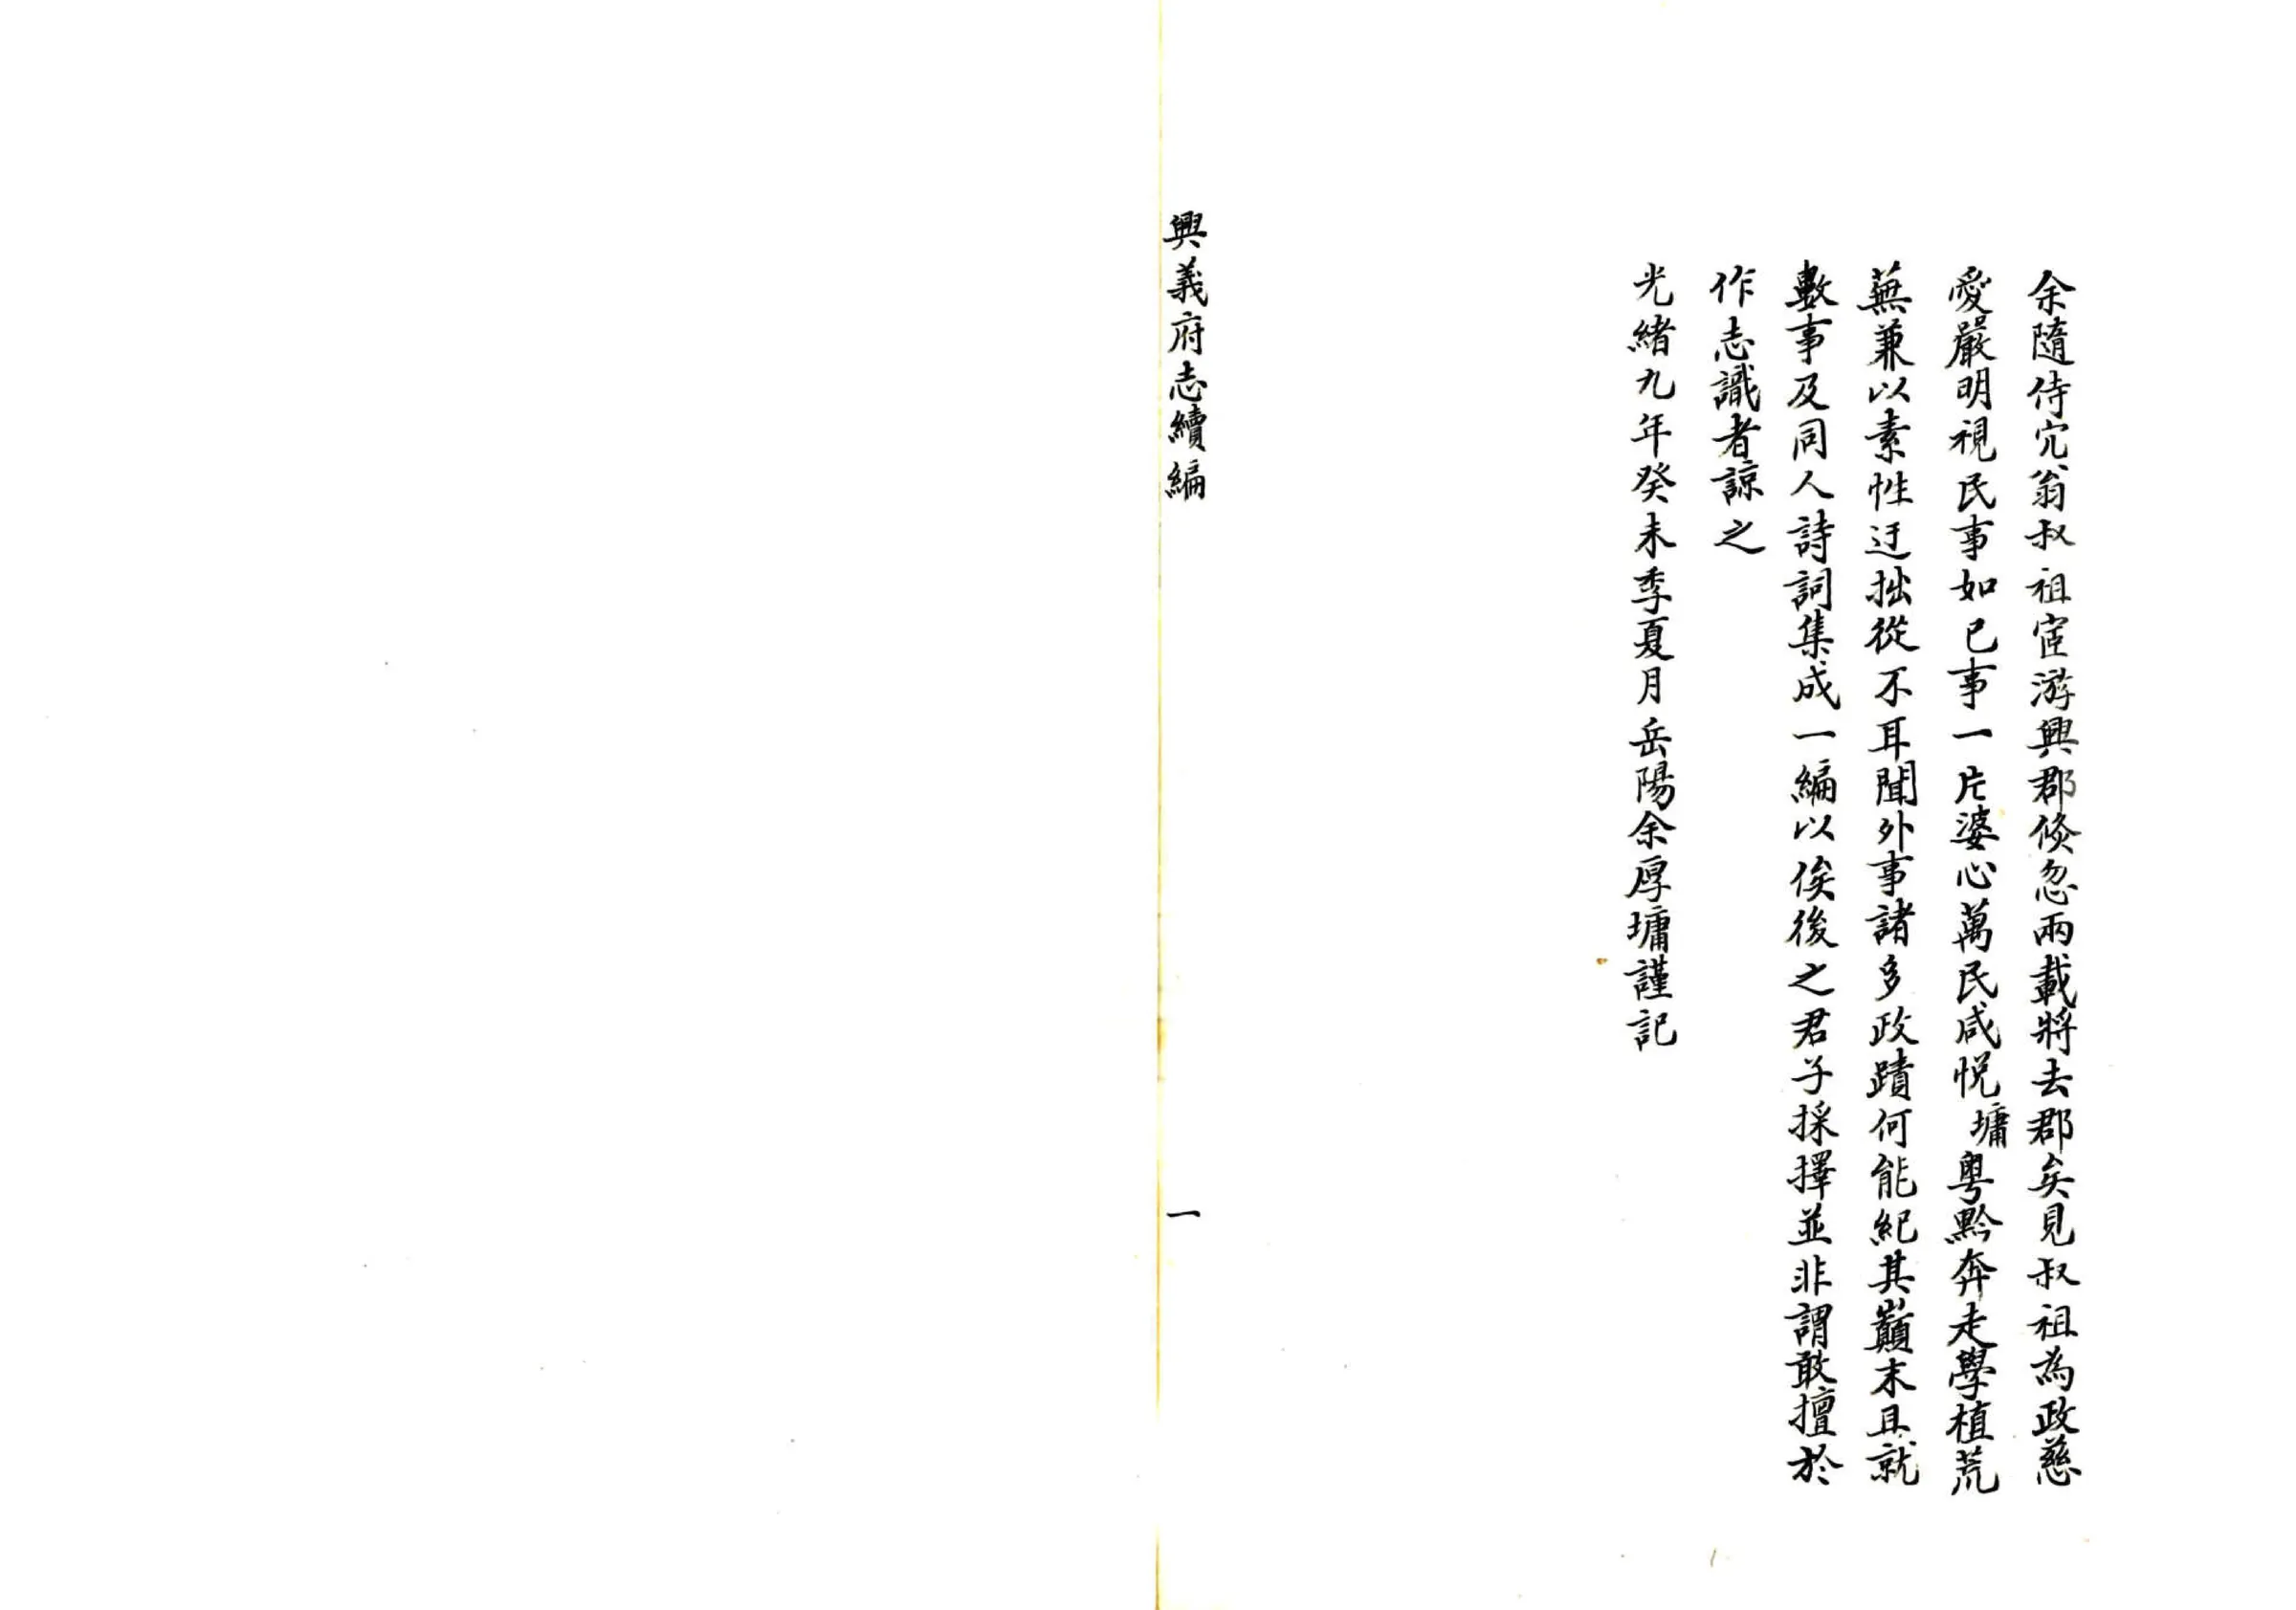 余隨侍宂翁叔祖宦游興郡倏忽兩載將去郡矣見叔祖為政慈
愛嚴明視民事如已事一片婆心萬民咸悅墉粵黔奔走學植荒
蕪兼以素性迂拙從不耳聞外事諸多政蹟何能紀其巔末且就
數事及同人詩詞集成一編以俟後之君子採擇並非謂敢擅於
作志識者諒之
光緒九年癸未季夏月岳陽余厚墉謹記
興義府志續編
一